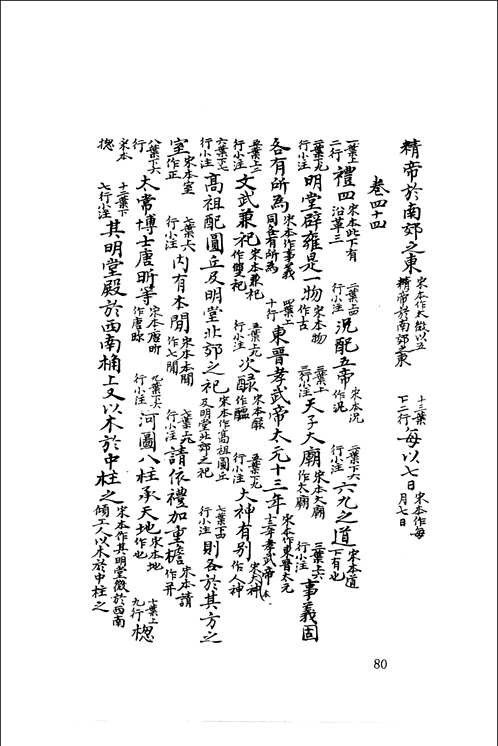 精帝於南郊之東 宋本作大微以五精帝於南郊之東 十二葉下二行 每以七日 宋本作每月七日
卷四十四
一葉上二行 禮四 宋本此下有沿革三 二葉上四行小注 況配五帝 宋本況作汜 二葉下六行小注 六九之道 宋本道下有也
二葉下九行小注 明堂辟雍是一物 宋本物作古 三葉上三行小注 天子大廟 宋本大廟作太廟 三葉上六行小注 事義固
各有所為 宋本作事義固各有所為 四葉上十行 東晉孝武帝太元十三年 宋本作東晉太元十三年孝武帝
五葉上三行小注 文武兼祀 宋本兼祀作雙祀 五葉上九行小注 次醊 宋本醊作醞 五葉下九行小注 大神有別 宋本大神作人神
六葉下二行小注 高祖配圜丘及明堂北郊之祀 宋本作高祖圜丘及明堂北郊之祀 七葉下四行小注 則各於其方之
室 宋本室作正 七葉下六行小注 內有本閒 宋本本閒作七閒 七葉上九行小注 請依禮加重檐 宋本請作并
八葉下六行 太常博士唐昕等 宋本唐昕作唐眎 七葉下六行小注 河圖八柱承天地 宋本地作也 十葉上九行 楤
宋本楤 十一葉下七行小注 其明堂殿於西南桷上又以木於中柱之 宋本作其明堂徵於西南傾工人以木於中柱之